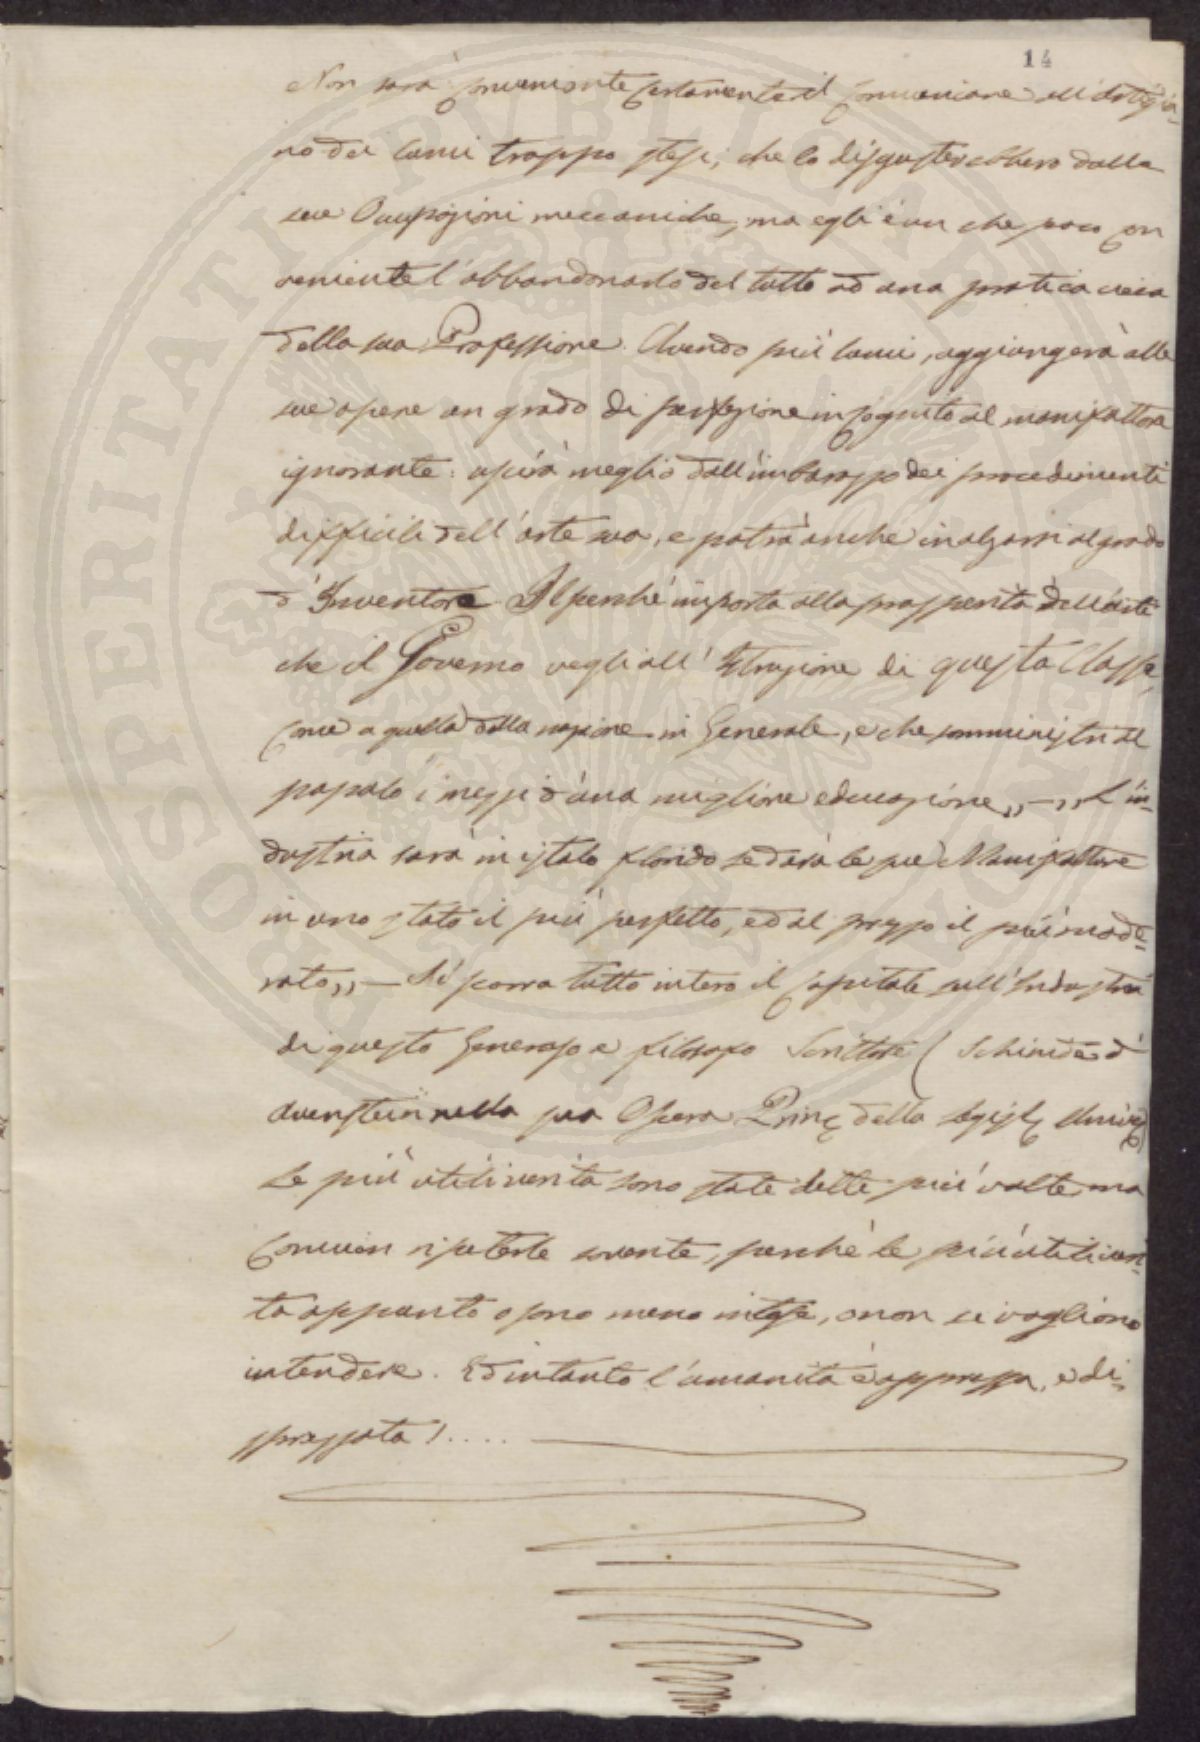 14
Non sarà conveniente certamente il comunicare all'artigia-
no dei lumi troppo stesi, che lo disgusterebbero dalle
sue Occupazioni meccaniche, ma egli è un che poco con
veniente l'abbandonarlo del tutto ad una pratica cieca
della sua Professione. Avendo più lumi, aggiungerà alle
sue opere un grado di perfezione incognito al manifattore
ignorante: uscirà meglio dall'imbarazzo dei procedimenti
difficili dell'arte sua, e potrà anche inalzarsi al grado
d'Inventore. Il perché importa alla prosperità dell'arti
che il Governo vegli all'Istruzione di questa Classe,
come a quella della nazione in Generale, e che somministri al
popolo i mezzi d'una migliore educazione,, — ,, L'in-
dustria sarà in istato florido se darà le sue Manifatture
in uno stato il più perfetto, ed al prezzo il più mode-
rato,, — Si scorra tutto intero il capitale sull'Industria
di questo Generoso e filosofo Scrittore (Schmid d'
Avenstein nella sua Opera Princ della Legisl Univ)
Le più utili verità sono state dette più volte, ma
convien ripeterle sovente, perchè le più utili veri-
tà appunto o sono meno intese, o non si vogliono
intendere. Ed intanto l'umanità è oppressa, e di-
sprezzata!....
PROSPERITATI PUBLICAE